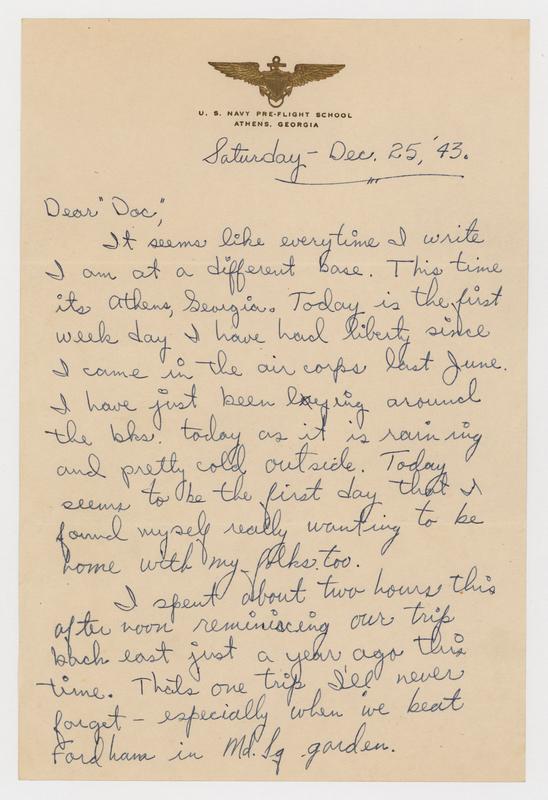 U. S. NAVY PRE-FLIGHT SCHOOL
ATHENS, GEORGIA
Saturday - Dec. 25, '43.
Dear "Doc",
It seems like everytime I write
I am at a different base. This time
its Athens, Georgia. Today is the first
week day I have had liberty since
I came in the air corps last June.
I have just been laying around
the bks. today as it is raining
and pretty cold outside. Today
seems to be the first day that I
found myself really wanting to be
home with my folks too.
I spent about two hours this
after noon reminiscing our trip
back east just a year ago this
time. Thats one trip I'll never
forget - especially when we beat
Fordham in Md. Sq garden.